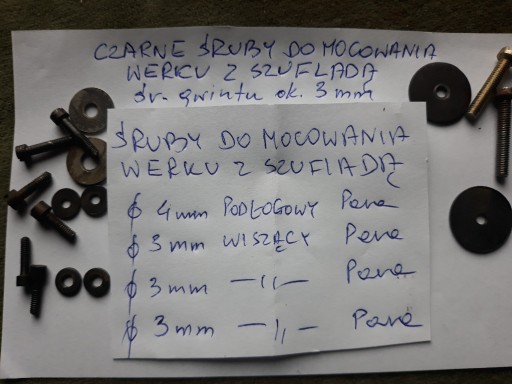 CZARNE ŚRUBY DO MOCOWANIA
WERKU Z SZUFLADĄ
śr. gwintu ok. 3 mm
ŚRUBY DO MOCOWANIA
WERKU Z SZUFLADĄ
ϕ 4 mm PODŁOGOWY Para
ϕ 3 mm WISZĄCY Para
ϕ 3 mm —〃— Para
ϕ 3 mm —〃— Para